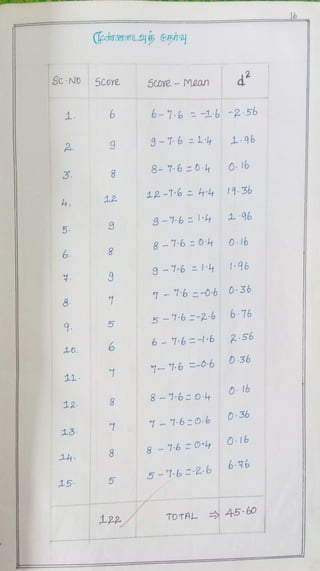 16
முன்னடைவுத் தேர்வு
SC.NO Score Score - Mean d²
1. 6 6-7.6 = -1.6 -2.56
2. 9 9-7.6 = 1.4 1.96
3. 8 8-7.6 = 0.4 0.16
4. 12 12-7.6 = 4.4 19.36
5. 9 9-7.6 = 1.4 1.96
6. 8 8-7.6 = 0.4 0.16
7. 9 9-7.6 = 1.4 1.96
8. 7 7-7.6 = -0.6 0.36
9. 5 5-7.6 = -2.6 6.76
10. 6 6-7.6 = -1.6 2.56
11. 7 7-7.6 = -0.6 0.36
12. 8 8-7.6 = 0.4 0.16
13. 7 7-7.6 = 0.6 0.36
14. 8 8-7.6 = 0.4 0.16
15. 5 5-7.6 = -2.6 6.76
122 TOTAL ⇒ 45.60